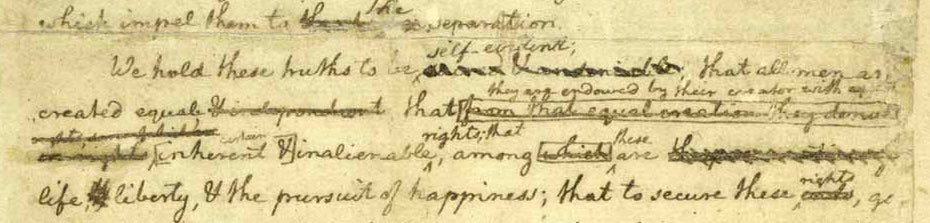 which impel them to the separation.
self-evident;
We hold these truths to be sacred & undeniable; that all men are
they are endowed by their creator with
created equal & independent that from that equal creation they derive
rights, some of which are certain rights; that these
in rights inherent & inalienable, among which are the preservation of
rights
life, & liberty, & the pursuit of happiness; that to secure these ends, go-